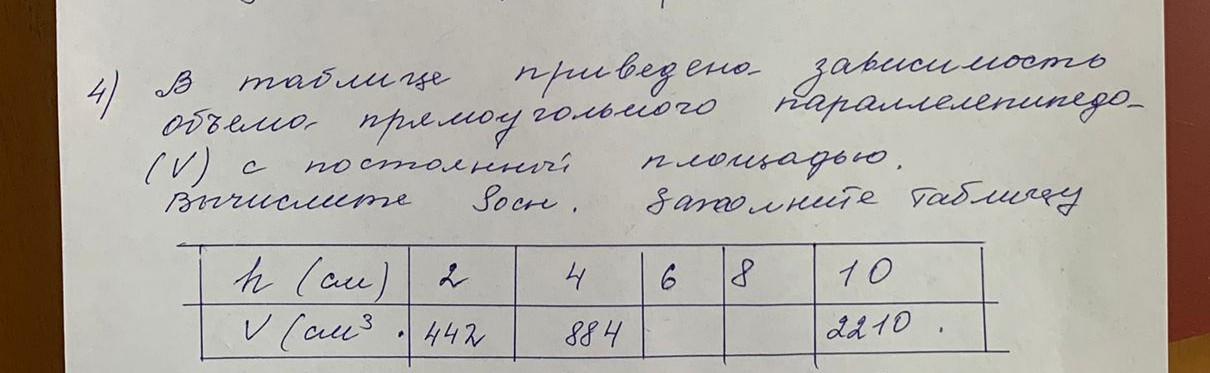 4) В таблице приведена зависимость
объема прямоугольного параллелепипеда
(V) с постоянной площадью.
Вычислите Sосн. Заполните таблицу
h (см) 2 4 6 8 10
V (см³. 442 884 2210.